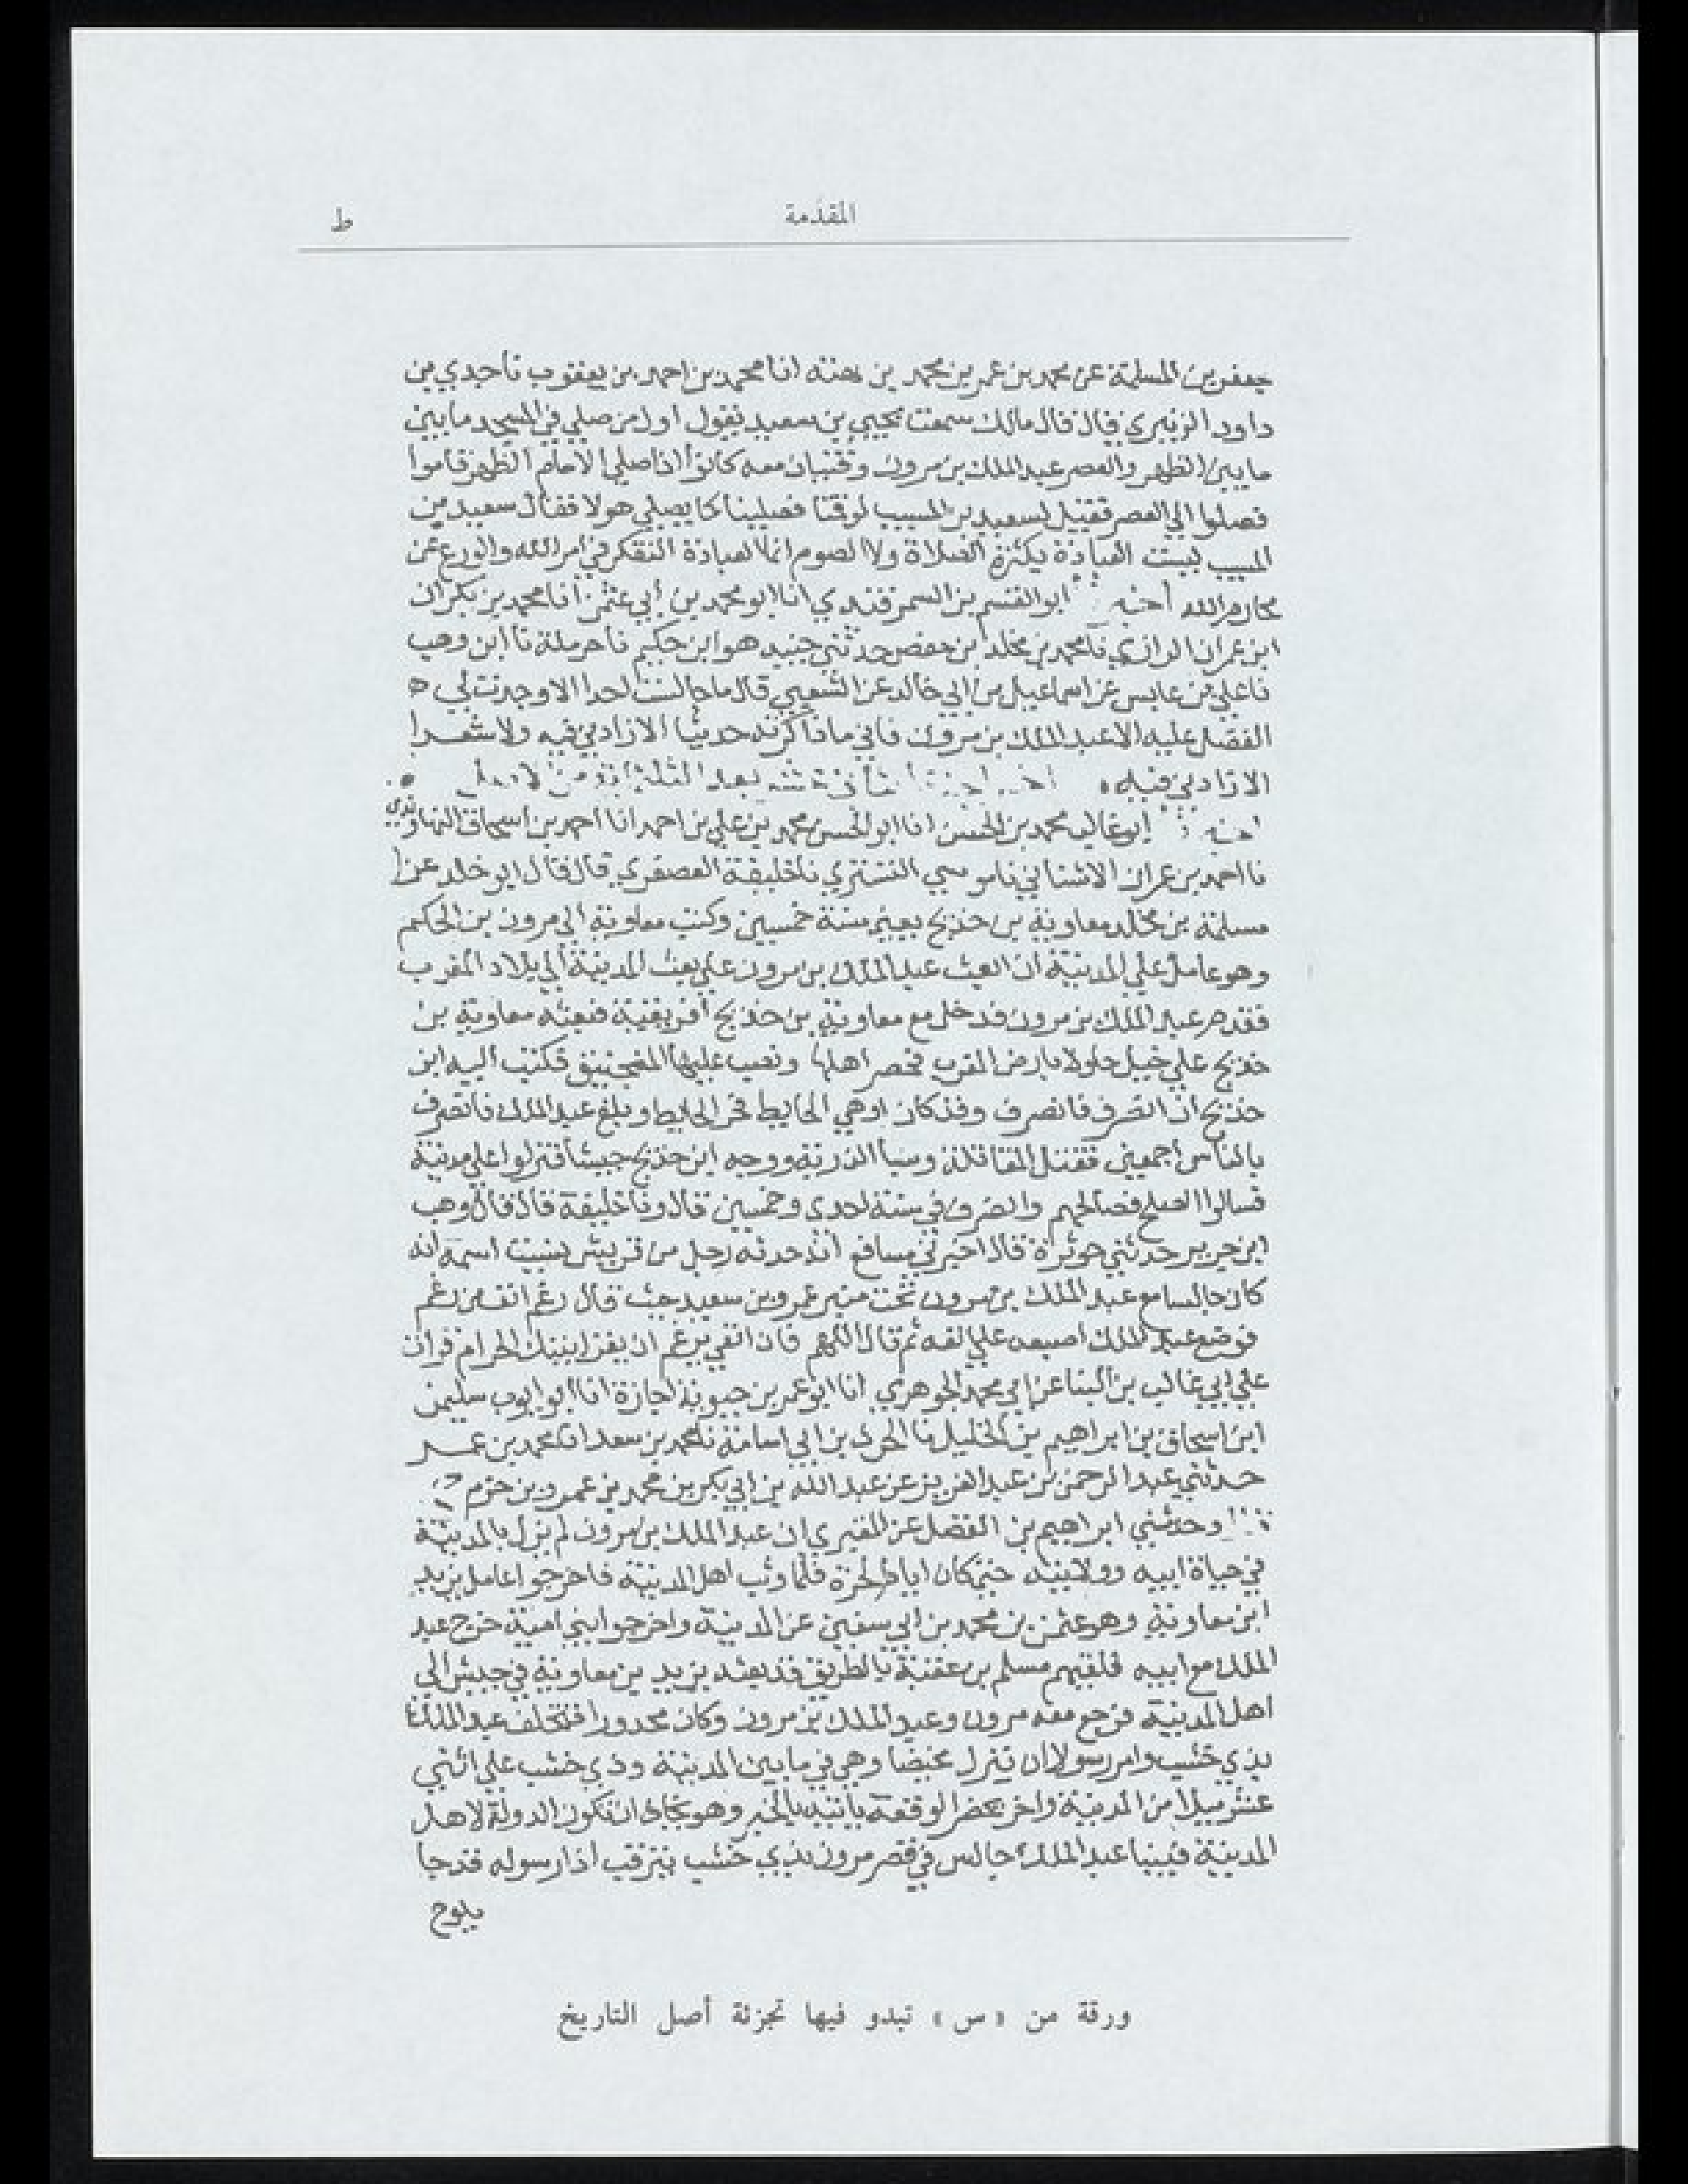 المقدمة
ط
جعفر بن المسلمة عن محمد بن عمر بن محمد بن بهتة انا محمد بن احمد بن يعقوب نا جدي بن
داود الزنبري قال قال مالك سمعت يحيي بن سعيد يقول اول من صلي في المسجد ما بين
ما بين الظهر والعصر عبد الملك بن مرون وفتيان معه كانوا اذا صلي الامام الظهر قاموا
فصلوا الي العصر فقيل لسعيد بن المسيب لو قمنا فصلينا كما يصلي هولا فقال سعيد بن
المسيب ليست العبادة بكثرة الصلاة ولا الصوم انما العبادة التفكر في امر الله والورع عن
محارم الله ابو القسم بن السمرقندي انا ابو محمد بن أبي عثمن انا محمد بن بكران
ابن عمران الرازي نا محمد بن مخلد بن حفص حدثني جنيد هو ابن حكيم نا حرملة نا ابن وهب
نا علي بن عابس عن اسماعيل بن ابي خالد عن الشعبي قال ما جالست احدا الا وجدت لي
الفضل عليه الا عبد الملك بن مرون فاني ما ذاكرته حديثا الا زادني فيه ولا شعرا
الا زادني فيه بعد الثلثماية من الاصل
ابو غالب محمد بن الحسن انا ابو الحسن محمد بن علي بن احمد انا احمد بن اسحاق النهاوندي
نا احمد بن عمران الاشناني نا موسي التستري نا خليفة العصفري قال قال ابو خالد عزا
مسلمة بن مخلد معاوية بن خديج بعيم سنة خمسين وكتب معاوية الي مرون بن الحكم
وهو عامل علي المدينة ان ابعث عبد الملك بن مرون علي بعث المدينة الي بلاد المغرب
فقدم عبد الملك بن مرون فدخل مع معاوية بن خديج افريقية فبعثه معاوية بن
خديج علي خيل جلولا بارض المغرب فحصر اهلها ونصب عليها المنجنيق فكتب اليه ابن
خديج ان انصرف فانصرف وقد كان اوهي الحايط فخر الحايط وبلغ عبد الملك فانصرف
بالناس اجمعين فقتل المقاتلة وسبا الذرية ووجه ابن خديج جيشا فنزلوا علي مدينة
فسالوا الصلح فصالحهم وانصرف في سنة احدي وخمسين قال ونا خليفة قال قال وهب
ابن جرير حدثني جويرة قال اخبرني مسافع انه حدثه رجل من قريش نسيت اسمه انه
كان جالسا مع عبد الملك بن مرون تحت منبر عمرو بن سعيد حيث قال رغم انف من رغم
فوضع عبد الملك اصبعه علي انفه ثم قال اللهم فان انفي يرغم ان يغزا بيتك الحرام قرات
علي ابي غالب بن البنا عن ابي محمد الجوهري انا ابو عمر بن حيوية اجازة انا ابو ايوب سليمن
ابن اسحاق بن ابراهيم بن الخليل نا الحرث بن ابي اسامة نا محمد بن سعد انا محمد بن عمر
حدثني عبد الرحمن بن عبد العزيز عن عبد الله بن ابي بكر بن محمد بن عمرو بن حزم
وحدثني ابراهيم بن الفضل عن المقبري ان عبد الملك بن مرون لم يزل بالمدينة
في حياة ابيه وولايته حتي كان ايام الحرة فلما وثب اهل المدينة فاخرجوا عامل يزيد
ابن معاوية وهو عثمن بن محمد بن ابي سفين عن المدينة واخرجوا بني امية خرج عبد
الملك مع ابيه فلقيهم مسلم بن عقبة بالطريق قد بعثه يزيد بن معاوية في جيش الي
اهل المدينة فرجع معه مرون وعبد الملك بن مرون وكان مجدورا فتخلف عبد الملك
بذي خشب وامر رسولا ان ينزل مخيضا وهي في ما بين المدينة وذي خشب علي اثني
عشر ميلا من المدينة واخر يحضر الوقعة ياتيه بالخبر وهو يخاف ان تكون الدولة لاهل
المدينة فبينا عبد الملك جالس في قصر مرون بذي خشب يترقب اذا رسوله قد جا
يلوح
ورقة من « س » تبدو فيها تجزئة أصل التاريخ